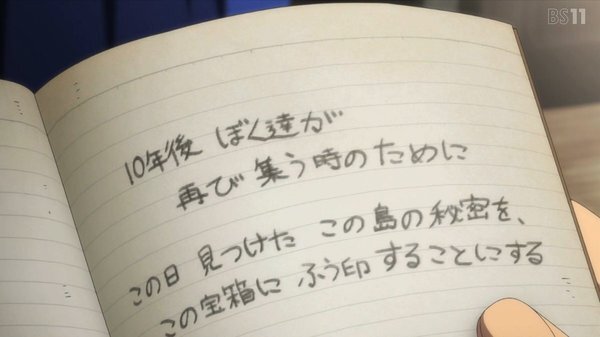 BS11
10年後 ぼく達が
再び 集う時のために
この日 見つけた この島の秘密を、
この宝箱に ふう印することにする